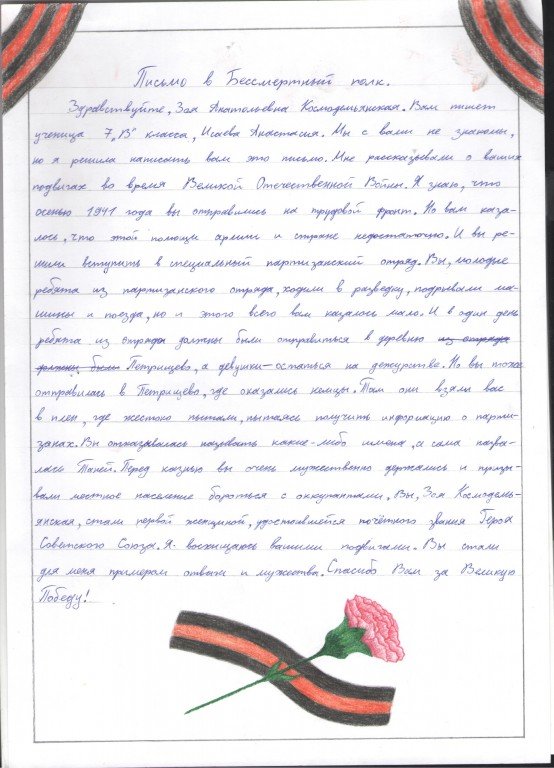 Письмо в Бессмертный полк.
Здравствуйте, Зоя Анатольевна Космодемьянская. Вам пишет
ученица 7„В" класса, Исаева Анастасия. Мы с вами не знакомы,
но я решила написать вам это письмо. Мне рассказывали о ваших
подвигах во время Великой Отечественной Войны. Я знаю, что
осенью 1941 года вы отправились на трудовой фронт. Но вам каза-
лось, что этой помощи армии и стране недостаточно. И вы ре-
шили вступить в специальный партизанский отряд. Вы, молодые
ребята из партизанского отряда, ходили в разведку, подрывали ма-
шины и поезда, но и этого всего вам казалось мало. И в один день
ребята из отряда должны были отправиться в деревню из отряда
должны были Петрищево, а девушки-остаться на дежурстве. Но вы тоже
отправилась в Петрищево, где оказались немцы. Там они взяли вас
в плен, где жестоко пытали, пытаясь получить информацию о парти-
занах. Вы отказывалась называть какие-либо имена, а сама назва-
лась Таней. Перед казнью вы очень мужественно держались и призы-
вали местное население бороться с оккупантами. Вы, Зоя Космодемь-
янская, стали первой женщиной, удостоившейся почётного звания Героя
Советского Союза. Я восхищаюсь вашими подвигами. Вы стали
для меня примером отваги и мужества. Спасибо Вам за Великую
Победу!